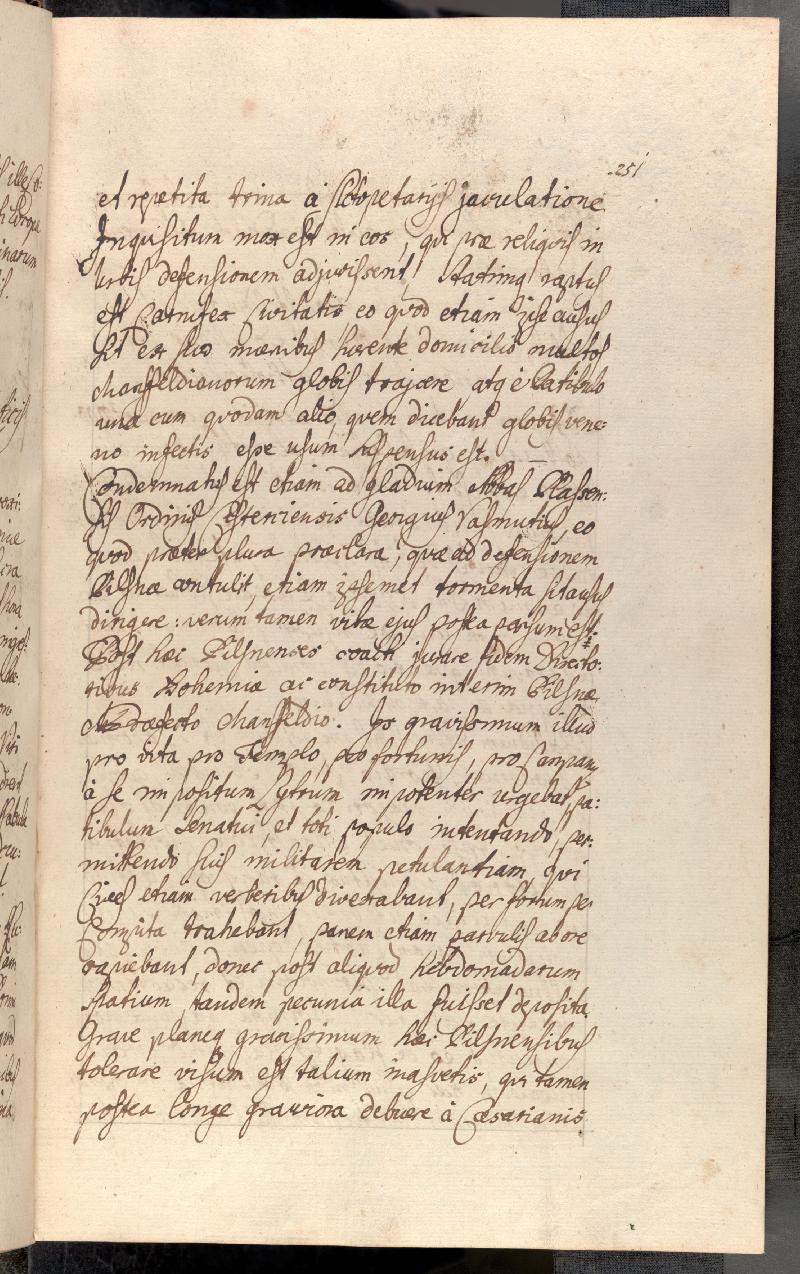 251
et repetita trina a Sclopetarijs javulatione
Inquisitum mox est in eos, qui præ reliquis in
Urbis defensionem adjuvissent, statimq raptus
est Carnifex Civitatis eo quod etiam ipse ausus
sit ex suo mœnibus hærente domicilio multos
Mansfeldianorum globis trajicere atq è latibulo
una cum quodam alio, quem dicebant globis vene=
no infectis esse usum suspensus est.
Condemnatus est etiam ad gladium Abbas Plassen:
sis Ordinis Cisterciensis Georgius Vasmutius, eo
quod præter plura præclara, quæ ad defensionem
Pilsnæ contulit, etiam ipsemet tormenta sit ausus
dirigere: verum tamen vitæ ejus postea parsum est.
Post hæc Pilsnenses coacti jurare fidem Directo:
ribus Bohemiæ ac constituto interim Pilsnæ
Præfecto Mansfeldio. Is gravissimum illud
pro vita pro Templo, pro fortunis, pro Campanis
à se impositum lytrum impotenter urgebat, pa:
tibulum Senatui, et toti populo intentando, per:
mittendo suis militarem petulantiam, qui
Cives etiam verberibus divexabant, per forum per
Compita trahebant, panem etiam parvulis ab ore
rapiebant, donec post aliquod hebdomadarum
spatium, tandem pecunia illa fuisset deposita
Grave planeq gravissimum hæc Pilsnensibus
tolerare visum est talium inasvetis, qui tamen
postea longe graviora debuere à Cæsarianis